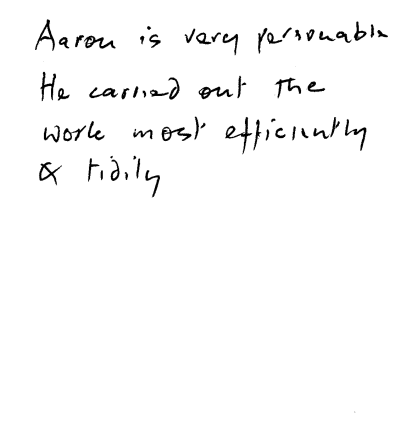 Aaron is very personable
He carried out the
work most efficiently
& tidily